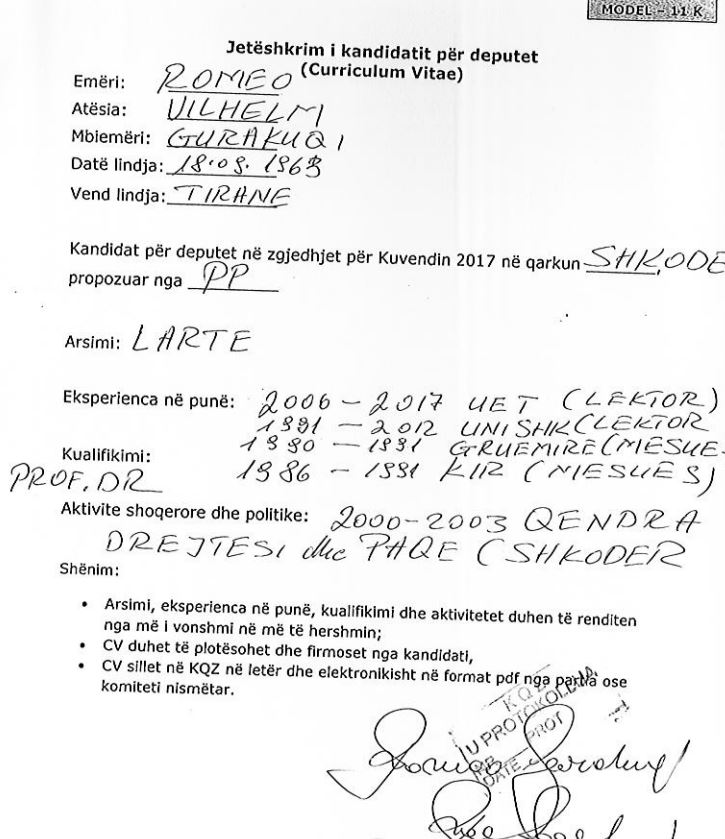 MODEL - 11 K
Jetëshkrim i kandidatit për deputet
(Curriculum Vitae)
Emëri: ROMEO
Atësia: VILHELMI
Mbiemëri: GURAKUQI
Datë lindja: 18.09.1963
Vend lindja: TIRANE
Kandidat për deputet në zgjedhjet për Kuvendin 2017 në qarkun SHKODE
propozuar nga PP
Arsimi: LARTE
Eksperienca në punë: 2006 - 2017 UET (LEKTOR)
1991 - 2012 UNISHK (LEKTOR
1990 - 1991 GRUEMIRE (MESUE
Kualifikimi: 1986 - 1991 KIR (MESUES)
PROF. DR
Aktivite shoqerore dhe politike: 2000-2003 QENDRA
DREJTESI dhe PAQE (SHKODER
Shënim:
• Arsimi, eksperienca në punë, kualifikimi dhe aktivitetet duhen të renditen
nga më i vonshmi në më të hershmin;
• CV duhet të plotësohet dhe firmoset nga kandidati,
• CV sillet në KQZ në letër dhe elektronikisht në format pdf nga partia ose
komiteti nismëtar.
KQZ
U PROTOKOLLUA
PROT
DATE